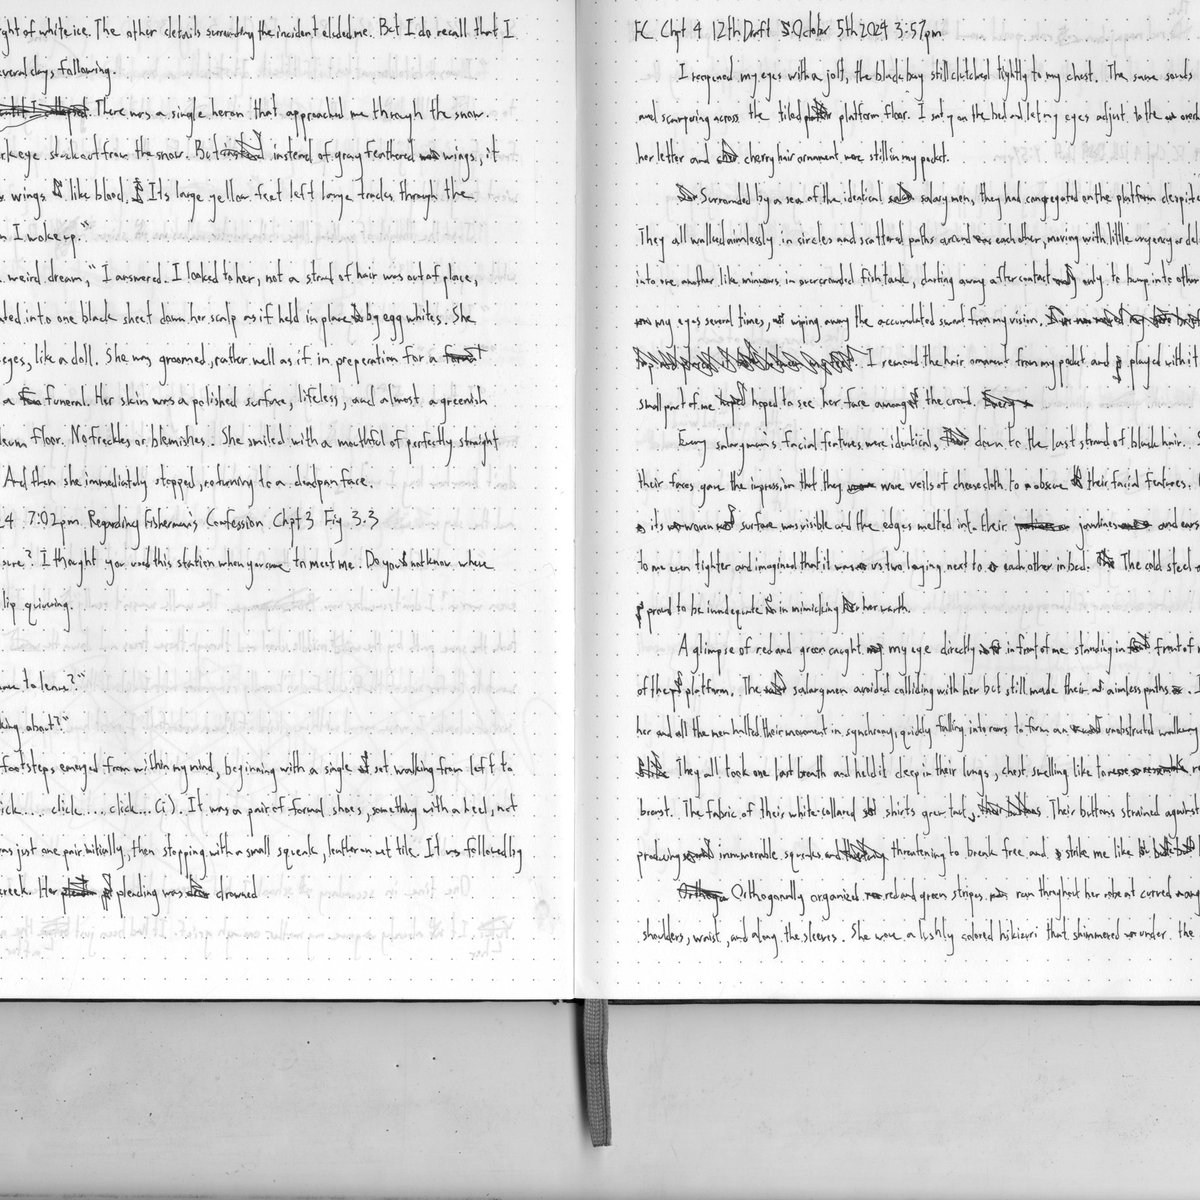 ght of white ice. The other details surrounding the incident eluded me. But I do recall that I
everal days following.
There was a single heron that approached me through the snow.
rk eye stuck out from the snow. But instead of gray feathered wings, it
wings like blood. Its large yellow feet left large tracks through the
n I woke up."
weird dream," I answered. I looked to her, not a strand of hair was out of place,
ated into one black sheet down her scalp as if held in place by egg whites. She
eyes, like a doll. She was groomed, rather well as if in preperation for a
a funeral. Her skin was a polished surface, lifeless, and almost a greenish
leum floor. No freckles or blemishes. She smiled with a mouthful of perfectly straight
And then she immediately stopped, returning to a deadpan face.
24 7:02pm. Regarding Fisherman's Confession Chpt 3 Fig 3.3
sure? I thought you used this station when you came to meet me. Do you not know where
lip quivering.
me to leave?"
king about?"
footsteps emerged from within my mind, beginning with a single set walking from left to
ick.... click.... click...(i). It was a pair of formal shoes, something with a heel, not
as just one pair initially, then stopping with a small squeak, leather on wet tile. It was followed by
reek. Her pleading was drowned
FC Chpt 4 12th Draft October 5th 2024 3:57pm
I reopened my eyes with a jolt, the black bag still clutched tightly to my chest. The same sounds
and scampering across the tiled platform floor. I sat y on the bed and let my eyes adjust to the
her letter and cherry hair ornament were still in my pocket.
Surrounded by a sea of the identical salarymen, they had congregated on the platform despite
They all walked aimlessly in circles and scattered paths around each other, moving with little urgency or
into one another like minnows in overcrowded fish tank, darting away after contact only to bump into other
my eyes several times, wiping away the accumulated sweat from my vision.
I removed the hair ornament from my pocket and played with it
small part of me hoped to see her face amongst the crowd.
Every salaryman's facial features were identical, down to the last strand of black hair.
their faces gave the impression that they wore veils of cheesecloth to obscure their facial features.
its woven surface was visible and the edges melted into their jawlines and ears
to me even tighter and imagined that it was us two laying next to each other in bed. The cold steel
proved to be inadequate in mimicking her warmth.
A glimpse of red and green caught my eye directly in front of me standing in front of
of the platform. The salarymen avoided colliding with her but still made their aimless paths.
her and all the men halted their movement in synchrony, quickly falling into rows to form an unobstructed walking
They all took one last breath and held it deep in their lungs, chest swelling like
breast. The fabric of their white-collared shirts grew taut, Their buttons strained against
producing innumerable squeaks and threatening to break free and strike me like
Orthogonally organized red and green stripes ran throughout her robe at curved
shoulders, waist, and along the sleeves. She wore a lushly colored hikizuri that shimmered under the